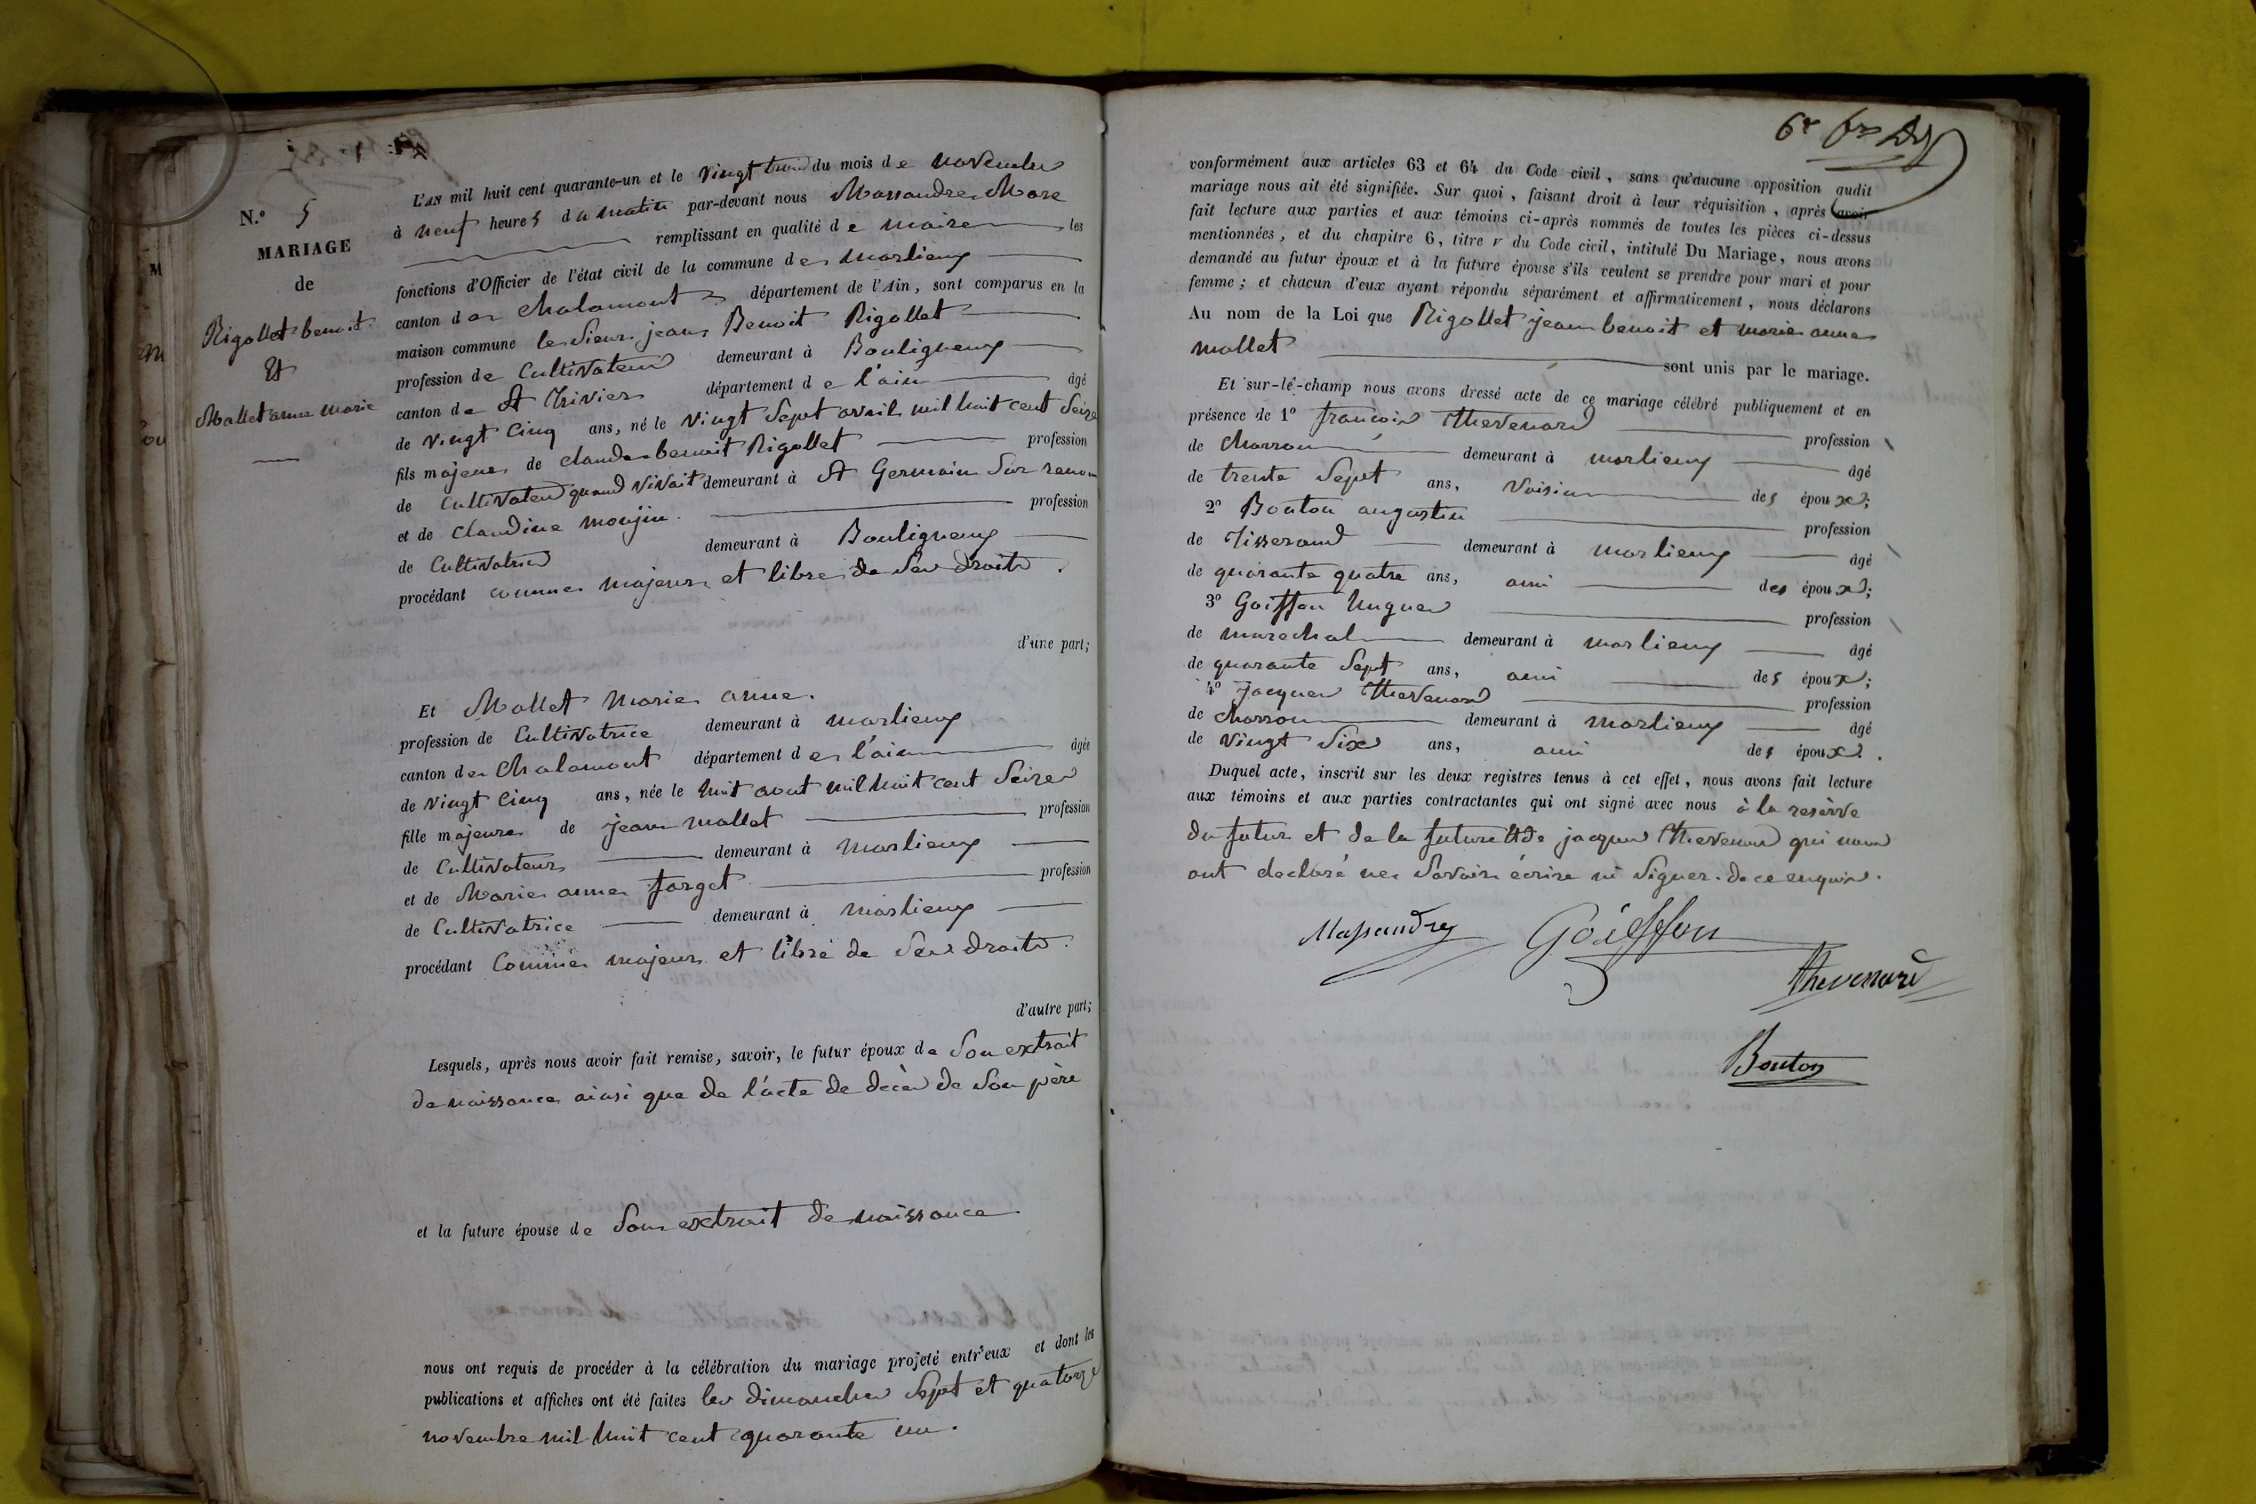 N.° 5
MARIAGE
de
Rigollet benoit
Et
Mallet anne marie
L'AN mil huit cent quarante-un et le vingt trois du mois de novembre
à neuf heures du matin par-devant nous Massandre Marc
remplissant en qualité de maire les
fonctions d'Officier de l'état civil de la commune de marlieux
canton de chalamont département de l'Ain, sont comparus en la
maison commune le Sieur jean Benoit Rigollet
profession de Cultivateur demeurant à Bouligneux
canton de St Trivier département de l'ain âgé
de vingt Cinq ans, né le vingt Sept avril mil huit cent Seize
fils majeur de claude benoit Rigollet profession
de Cultivateur quand vivait demeurant à St Germain Sur renom
et de Claudine monjin profession
de Cultivatrice demeurant à Bouligneux
procédant comme majeur et libre de Ses droits.
d'une part;
Et Mallet Marie anne.
profession de Cultivatrice demeurant à marlieux
canton de Chalamont département de l'ain âgée
de vingt Cinq ans, née le huit aout mil huit cent Seize
fille majeure de jean mallet profession
de Cultivateur demeurant à marlieux
et de Marie anne forget profession
de Cultivatrice demeurant à marlieux
procédant Comme majeure et libre de Ses droits.
d'autre part;
Lesquels, après nous avoir fait remise, savoir, le futur époux de Son extrait
de naissance ainsi que de l'acte de décès de Son père
et la future épouse de Son extrait de naissance
nous ont requis de procéder à la célébration du mariage projeté entr'eux et dont les
publications et affiches ont été faites les dimanches Sept et quatorze
novembre mil huit cent quarante un.
conformément aux articles 63 et 64 du Code civil, sans qu'aucune opposition audit
mariage nous ait été signifiée. Sur quoi, faisant droit à leur réquisition, après avoir
fait lecture aux parties et aux témoins ci-après nommés de toutes les pièces ci-dessus
mentionnées, et du chapitre 6, titre v du Code civil, intitulé Du Mariage, nous avons
demandé au futur époux et à la future épouse s'ils veulent se prendre pour mari et pour
femme; et chacun d'eux ayant répondu séparément et affirmativement, nous déclarons
Au nom de la Loi que Rigollet jean benoit et marie anne
mallet sont unis par le mariage.
Et sur-le-champ nous avons dressé acte de ce mariage célébré publiquement et en
présence de 1° françois Thevenard profession
de charron demeurant à marlieux âgé
de trente Sept ans, voisin des époux;
2° Bouton augustin profession
de Tisserand demeurant à marlieux âgé
de quarante quatre ans, ami des époux;
3° Goiffon hugues profession
de marechal demeurant à marlieux âgé
de quarante Sept ans, ami des époux;
4° Jacques Thevenard profession
de charron demeurant à marlieux âgé
de vingt Six ans, ami des époux.
Duquel acte, inscrit sur les deux registres tenus à cet effet, nous avons fait lecture
aux témoins et aux parties contractantes qui ont signé avec nous à la resérve
du futur et de la future et de jacques Thevenard qui nous
ont declaré ne Savoir écrire ni Signer. de ce enquis.
Massandre Goiffon
thevenard
Bouton